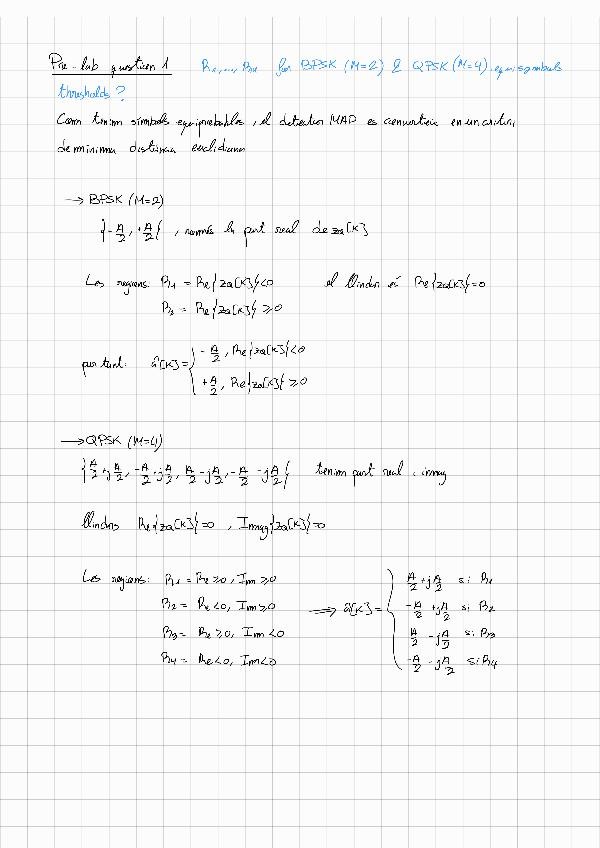 Pre-lab question 1 R1,...,RM for BPSK (M=2) & QPSK (M=4) equisymbols
thresholds?
Com tenim símbols equiprobables, el detector MAP es converteix en un criteri
de mínima distància euclidiana
→ BPSK (M=2)
{-A/2, +A/2}, només la part real de za[k]
Les regions: R1 = Re{za[k]}<0 el llindar és Re{za[k]}=0
R2 = Re{za[k]} ≥0
per tant: â[k] = { -A/2, Re{za[k]}<0
+A/2, Re{za[k]} ≥0
→ QPSK (M=4)
{A/2+jA/2, -A/2+jA/2, A/2-jA/2, -A/2-jA/2} tenim part real i imag
llindars Re{za[k]}=0, Imag{za[k]}=0
Les regions: R1 = Re ≥0, Im ≥0
R2 = Re <0, Im ≥0
R3 = Re ≥0, Im <0
R4 = Re<0, Im<0
⟹ â[k] = { A/2+jA/2 si R1
-A/2+jA/2 si R2
A/2-jA/2 si R3
-A/2-jA/2 si R4